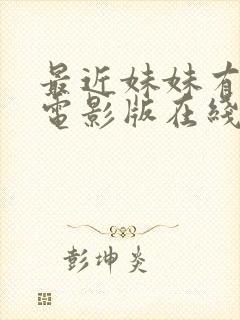 最近妹妹有
電影版在綫
彭坤炎